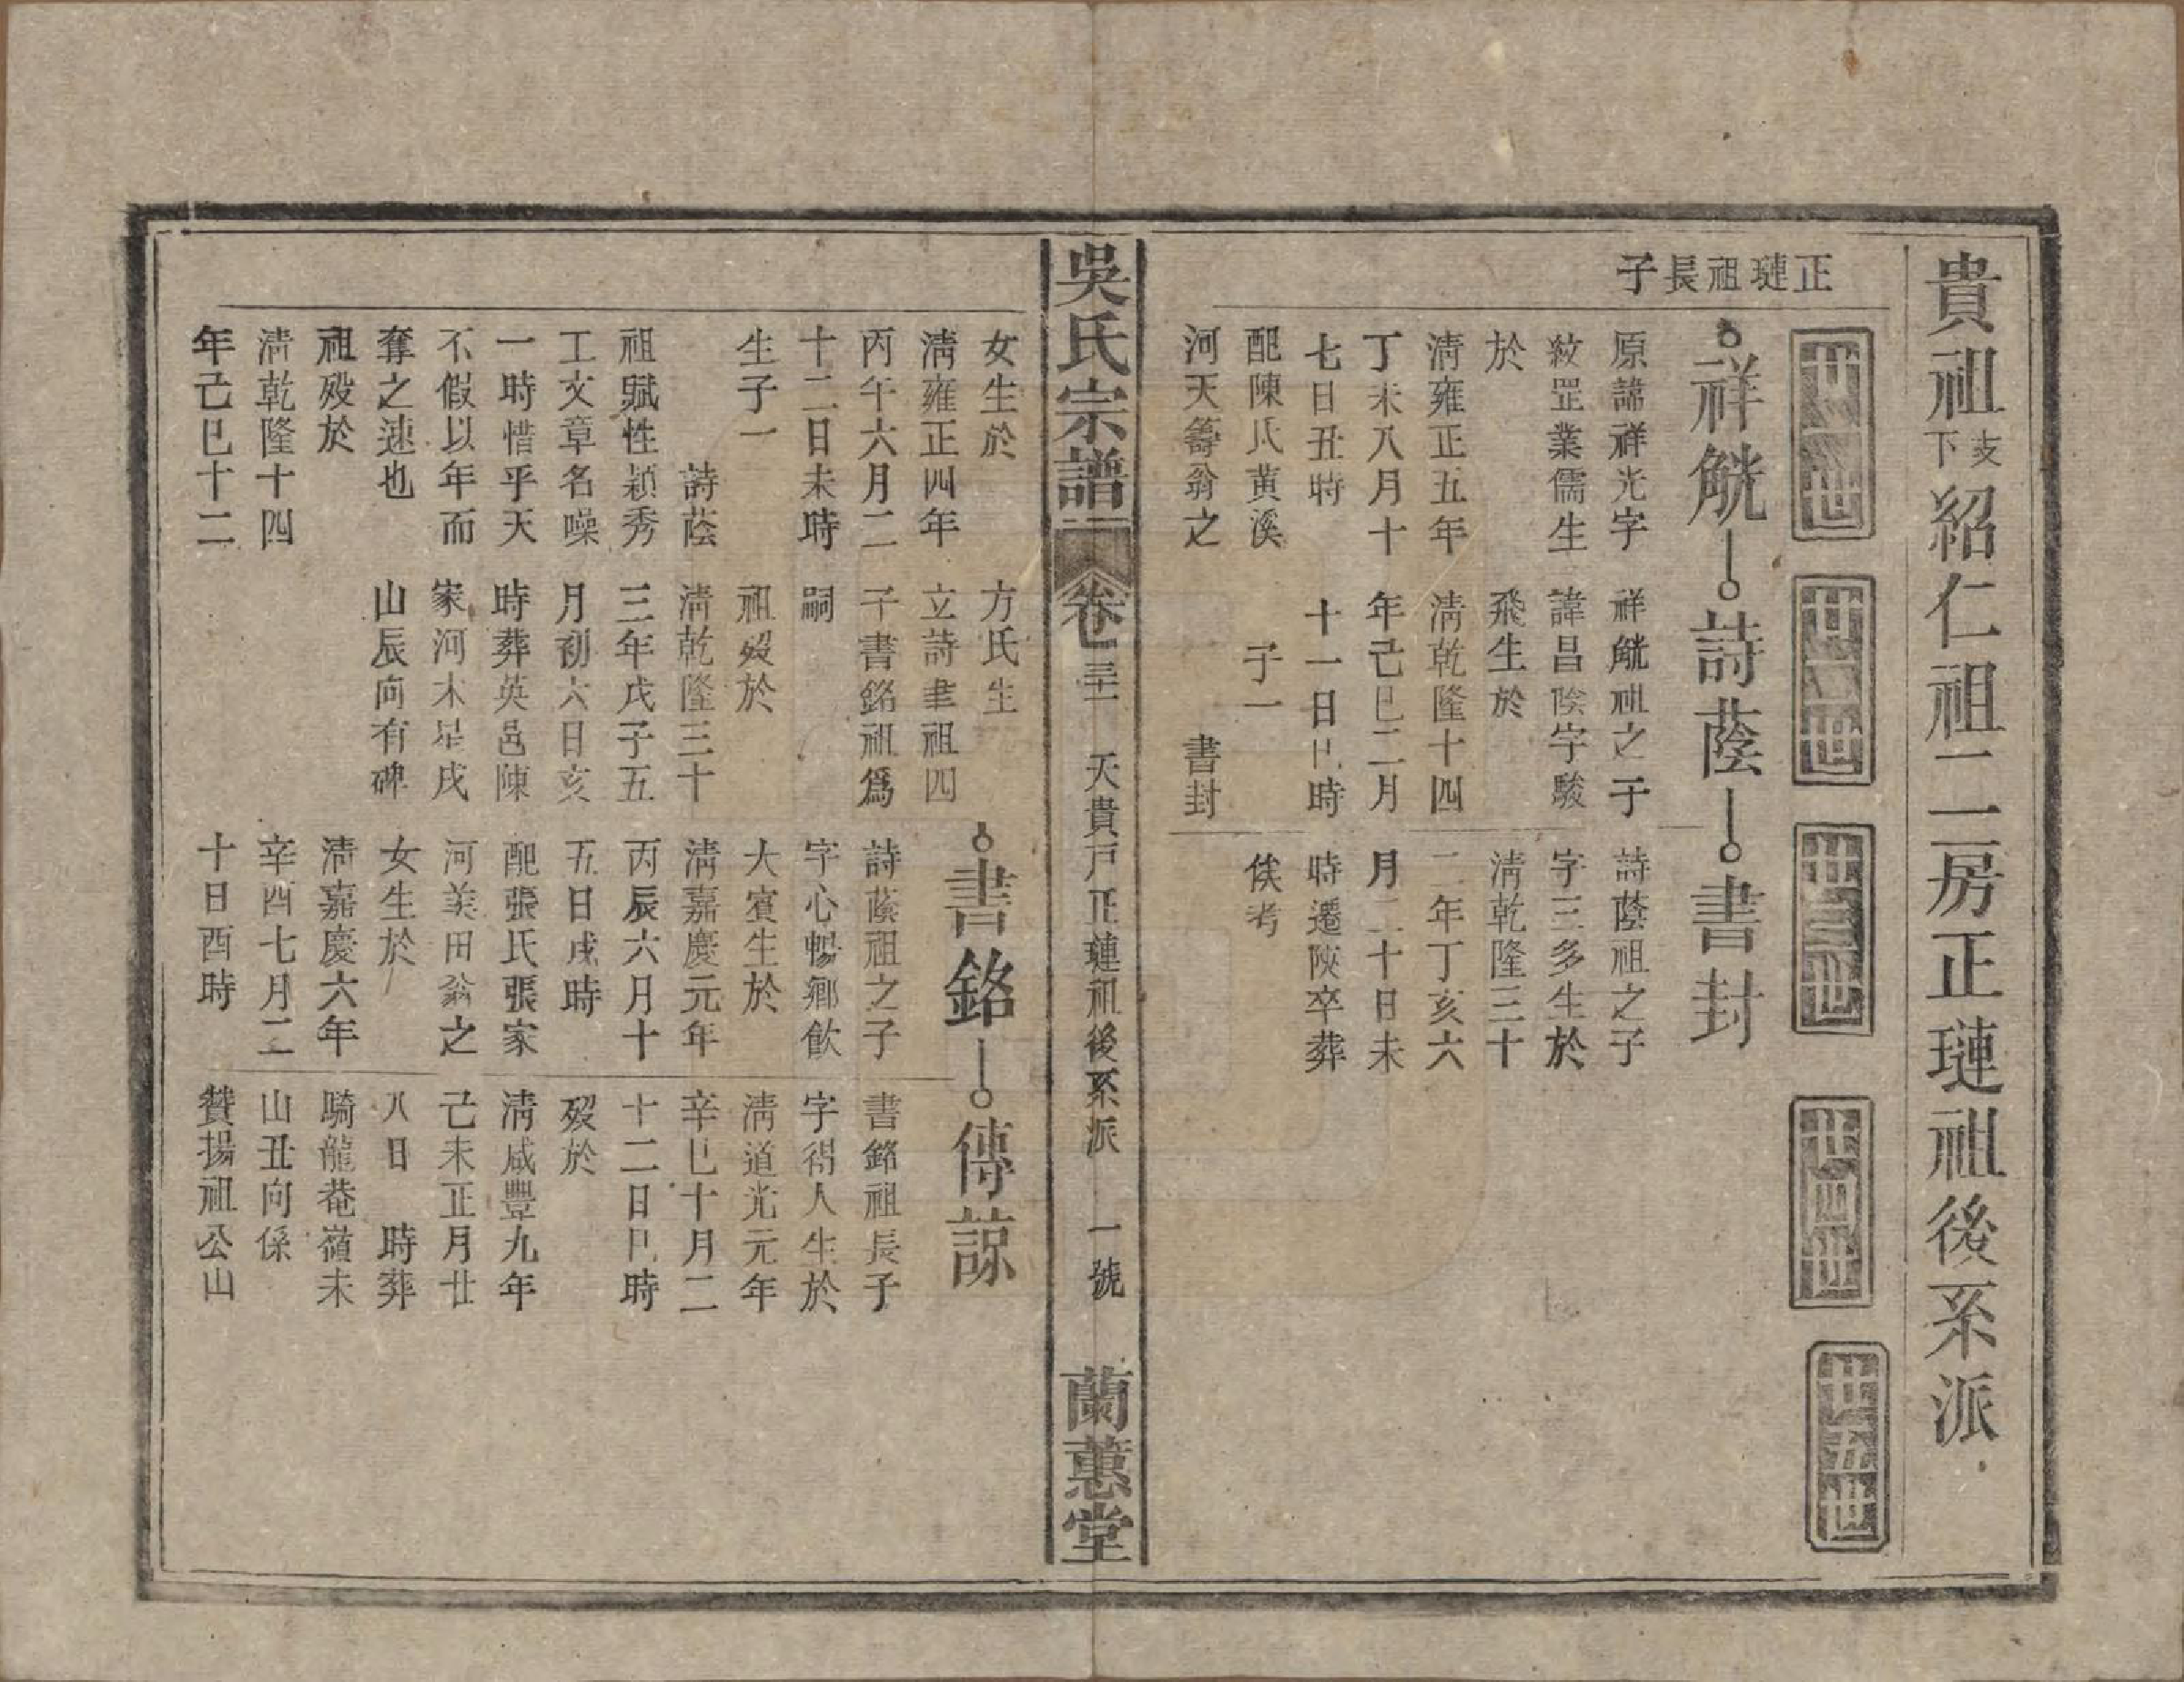 貴祖支下紹仁祖二房正璉祖後系派
廿一世
廿二世
廿三世
廿四世
廿五世
正璉祖長子
祥觥
詩蔭
書封
原諱祥光字
紋罡業儒生
於
清雍正五年
丁未八月十
七日丑時
配陳氏黃溪
河天籌翁之
祥觥祖之子
諱昌陵字駿
飛生於
清乾隆十四
年己巳二月
十一日巳時
子一
書封
詩蔭祖之子
字三多生於
清乾隆三十
二年丁亥六
月二十日未
時遷陝卒葬
俟考
吳氏宗譜
卷三十二
天貴戶正璉祖後系派
一號
蘭蕙堂
女生於
清雍正四年
丙午六月二
十二日未時
生子一
詩蔭
祖賦性穎秀
工文章名噪
一時惜乎天
不假以年而
奪之速也
祖歿於
清乾隆十四
年己巳十二
方氏生
立詩聿祖四
子書銘祖爲
嗣
祖歿於
清乾隆三十
三年戊子五
月初六日亥
時葬英邑陳
家河木星戌
山辰向有碑
書銘
傳諒
詩蔭祖之子
字心暢鄉飲
大賓生於
清嘉慶元年
丙辰六月十
五日戌時
配張氏張家
河美田翁之
女生於
清嘉慶六年
辛酉七月二
十日酉時
書銘祖長子
字得人生於
清道光元年
辛巳十月二
十二日巳時
歿於
清咸豐九年
己未正月廿
八日 時葬
騎龍菴嶺未
山丑向係
贊揚祖公山